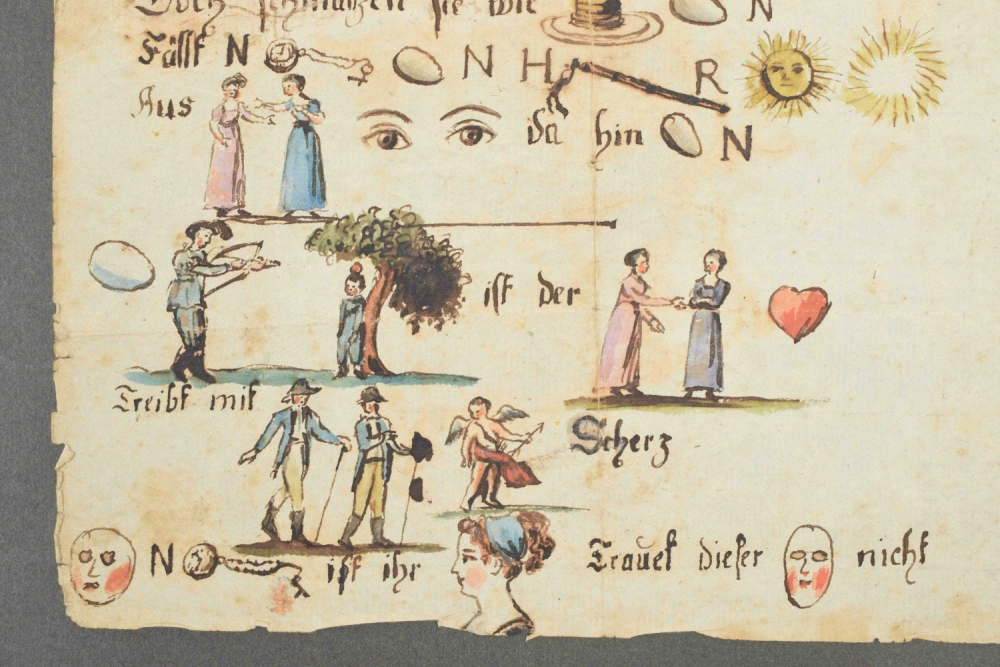 Doch schmalzen sie wie N
Fällt N N H R
Aus da hin N
ist der
Treibt mit Scherz
N ist ihr Trauet dieser nicht